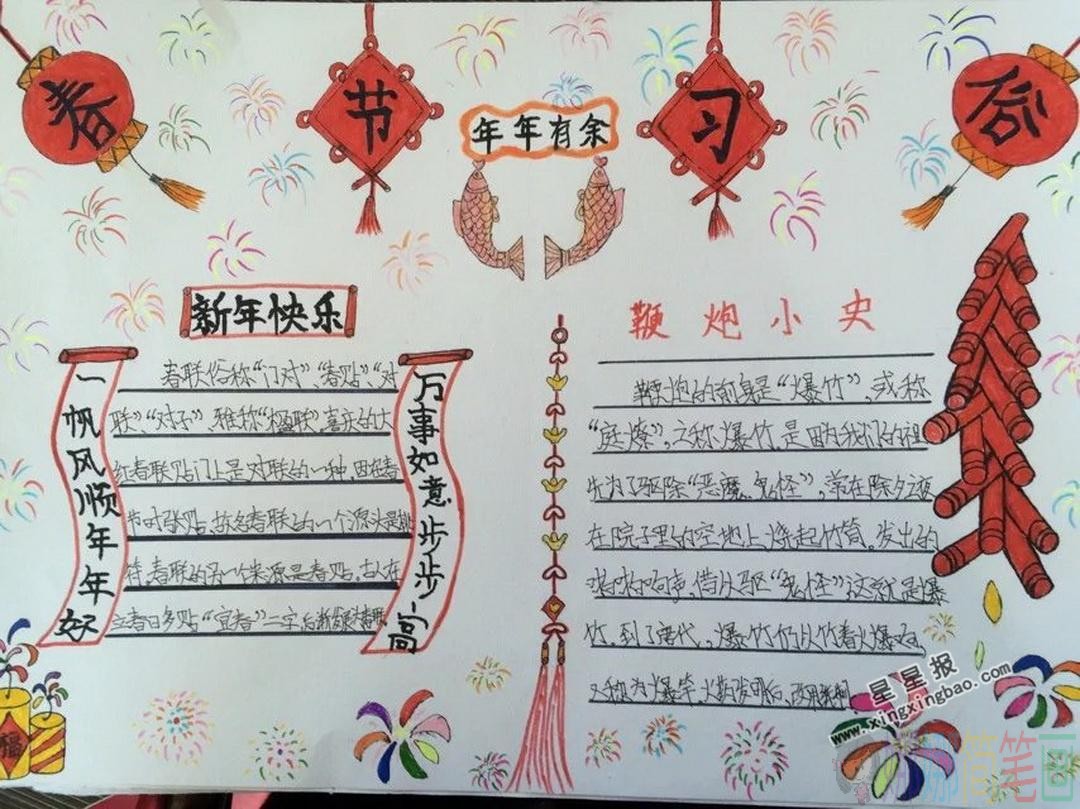 春节习俗
年年有余
新年快乐
一帆风顺年年好
春联俗称“门对”、“春贴”、“对
联”“对子”，雅称“楹联”，喜庆的大
红春联贴门上是对联的一种，因在春
节时张贴，故名春联的一个源头是桃
符，春联的另一个来源是春贴，古人在
立春日多贴“宜春”二字，后渐
万事如意步步高
鞭炮小史
鞭炮的前身是“爆竹”，或称
“庭燎”，之称爆竹，是因为我们的祖
先为了驱除“恶魔、鬼怪”，常在除夕之夜
在院子里的空地上，烧起竹筒，发出的
声，借以驱“鬼怪”这就是爆
竹，到了唐代，爆竹仍以竹着火爆响，
又称为爆竿，火药发明后，改用
福
星星报
www.xingxingbao.com
简笔画